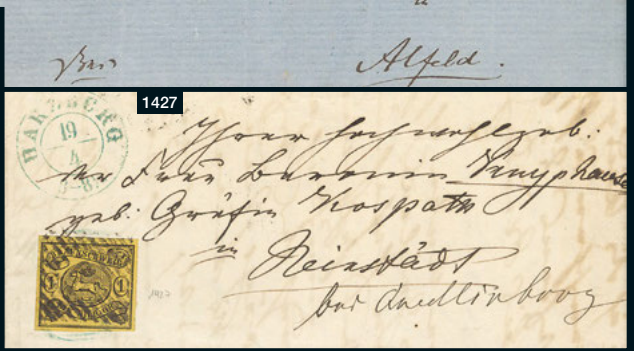 Alfeld.
1427
HARZBURG
19
4
Ihrer hochwohlgeb:
der Frau Baronin Knyphausen
geb: Gräfin Kospoth
in Reinstädt
bei Quedlinburg
1 1
1427